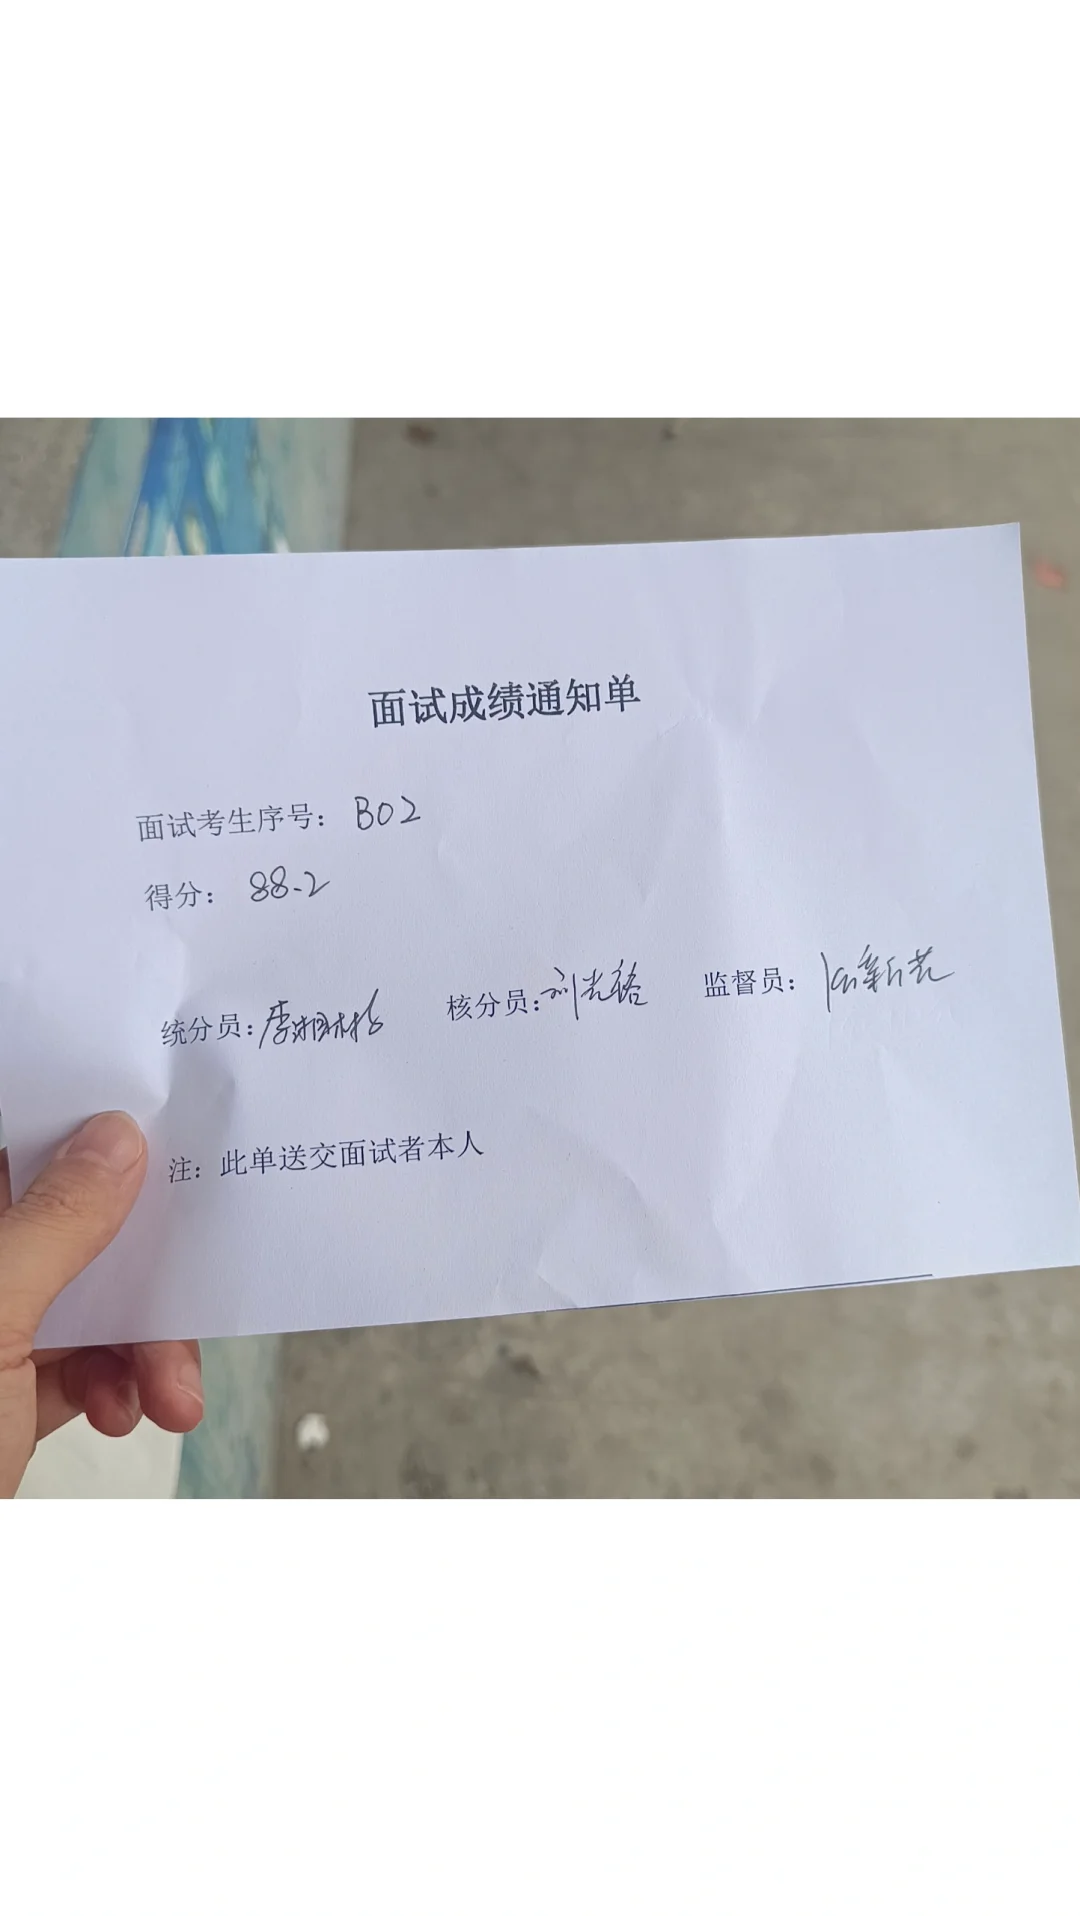 面试成绩通知单
面试考生序号： B02
得分： 88.2
统分员： 核分员： 监督员：
注：此单送交面试者本人